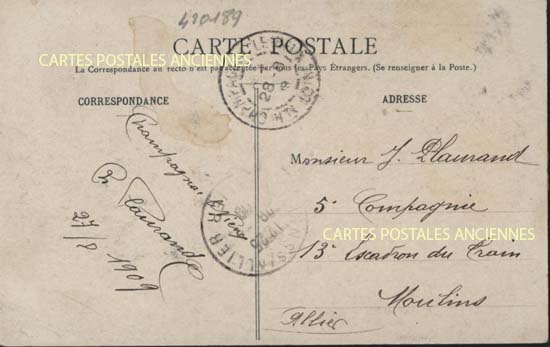 430189
CARTES POSTALES ANCIENNES
CARTE POSTALE
La Correspondance au recto n'est pas acceptée par tous les Pays Étrangers. (Se renseigner à la Poste.)
CORRESPONDANCE
ADRESSE
28-8
Champagnole
27/8 1909
ALLIER
Monsieur J. Plaurand
5e Compagnie
CARTES POSTALES ANCIENNES
13e Escadron du Train
Moulins
Allier